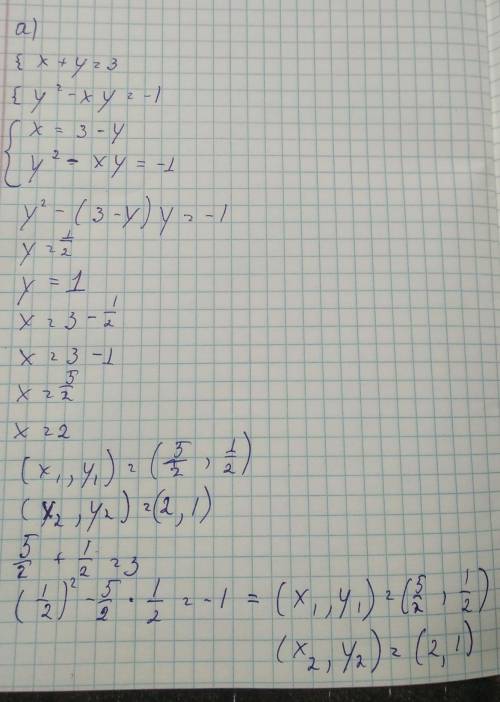 а)
{ x + y = 3
{ y² - xy = -1
{ x = 3 - y
y² - xy = -1
y² - (3 - y) y = -1
y = 1/2
y = 1
x = 3 - 1/2
x = 3 - 1
x = 5/2
x = 2
(x₁, y₁) = (5/2, 1/2)
(x₂, y₂) = (2, 1)
5/2 + 1/2 = 3
(1/2)² - 5/2 · 1/2 = -1 = (x₁, y₁) = (5/2, 1/2)
(x₂, y₂) = (2, 1)